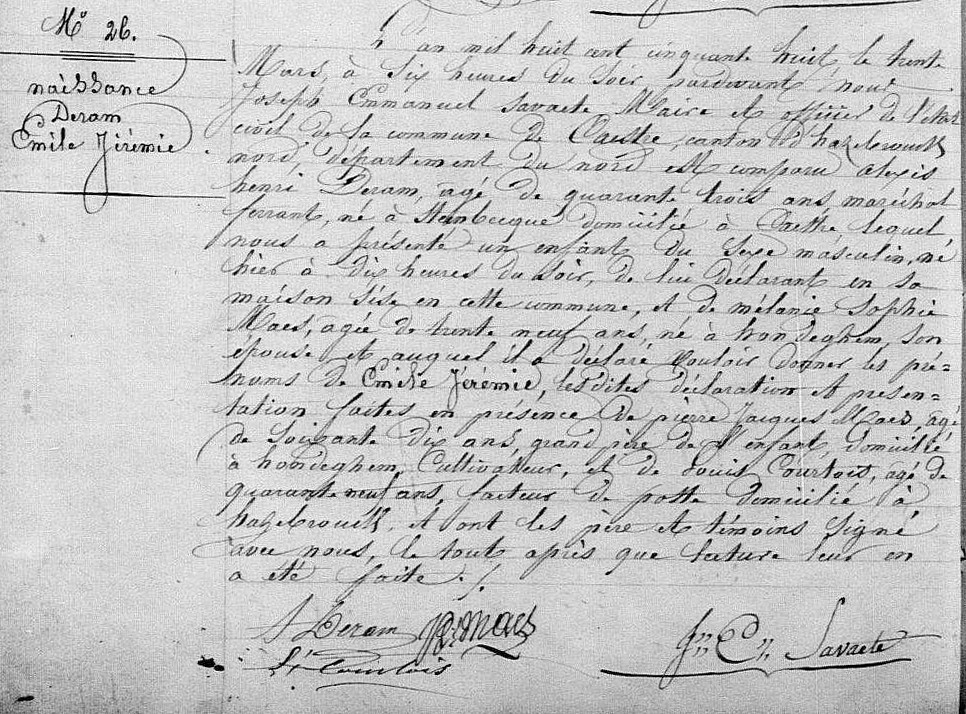 N° 26.
naissance
Deram
Emile Jérémie
L'an mil huit cent cinquante huit, le trente
Mars, à six heures du soir, pardevant nous
Joseph Emmanuel Savaete Maire et officier de l'état
civil de la commune de Caestre, canton d'hazebrouck
nord, département du nord est comparu alexis
henri Deram, agé de quarante trois ans, maréchal
ferrant, né à Steenbecque domicilié à Caestre lequel
nous a présenté un enfant du sexe masculin, né
hier à dix heures du soir, de lui déclarant en sa
maison sise en cette commune, et de mélanie Sophie
Maes, agée de trente neuf ans, né à hondeghem, son
épouse et auquel il a déclaré vouloir donner les pré=
noms de Emile Jérémie, les dites déclaration et présen=
tation faites en présence de pierre Jacques Maes, agé
de soixante dix ans, grand père de l'enfant domicilié
à hondeghem, Cultivateur, et de Louis Courtois, agé de
quarante neuf ans, facteur de poste domicilié à
hazebrouck, et ont les père et témoins signé
avec nous, le tout après que lecture leur en
a été faite ./.
A Deram PJ Maes
Ls Courtois
Jh El Savaete